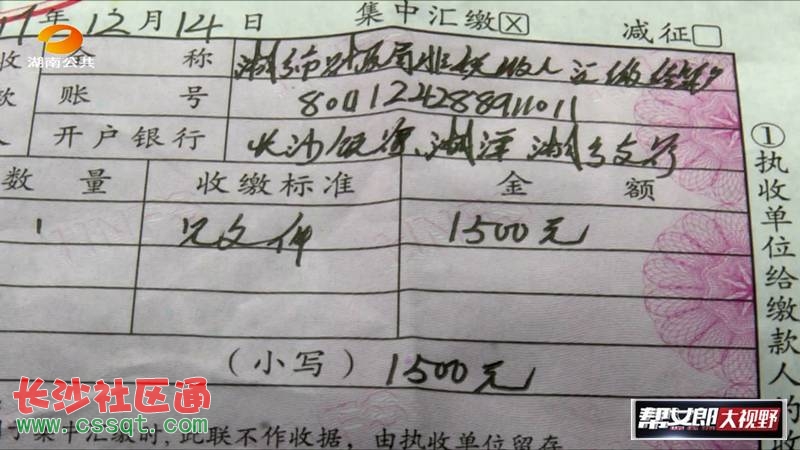 年12月14日 集中汇缴☒ 减征☐
湖南公共
收 全 称 湘乡市财政局非税收入汇缴结算户
款 账 号 80412428891011
人 开户银行 长沙银行湘潭湘乡支行
数 量 收缴标准 金 额
1 见文件 1500元
(小写) 1500元
①执收单位给缴款人的收
长沙社区通
www.cssqt.com
帮女郎大视野
于集中汇缴时,此联不作收据,由执收单位留存